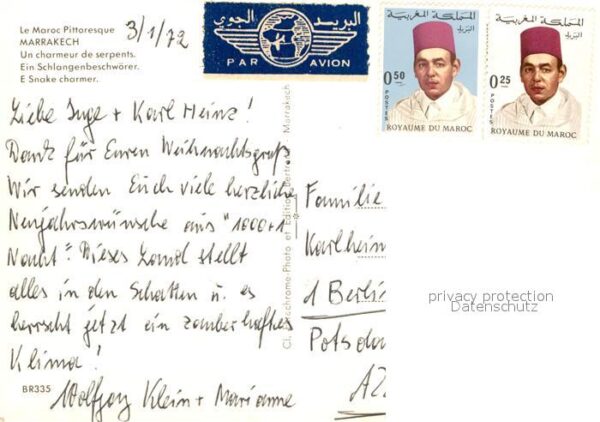 Le Maroc Pittoresque
MARRAKECH
Un charmeur de serpents.
Ein Schlangenbeschwörer.
E Snake charmer.
3/1/72
البريد الجوي
PAR AVION
المملكة المغربية
البريد
0,50
POSTES
ROYAUME DU MAROC
المملكة المغربية
البريد
0,25
POSTES
ROYAUME DU MAROC
Liebe Inge + Karl Heinz!
Dank für Euren Weihnachtsgruß
Wir senden Euch viele herzliche
Neujahrswünsche aus "1000+1
Nacht". Dieses Land stellt
alles in den Schatten u. es
herrscht jetzt ein zauberhaftes
Klima!
Wolfgang Klein + Marianne
BR335
Photo et Edition Bertrand Marrakech
Familie
Karlhein
1 Berlin
Potsda
privacy protection
Datenschutz